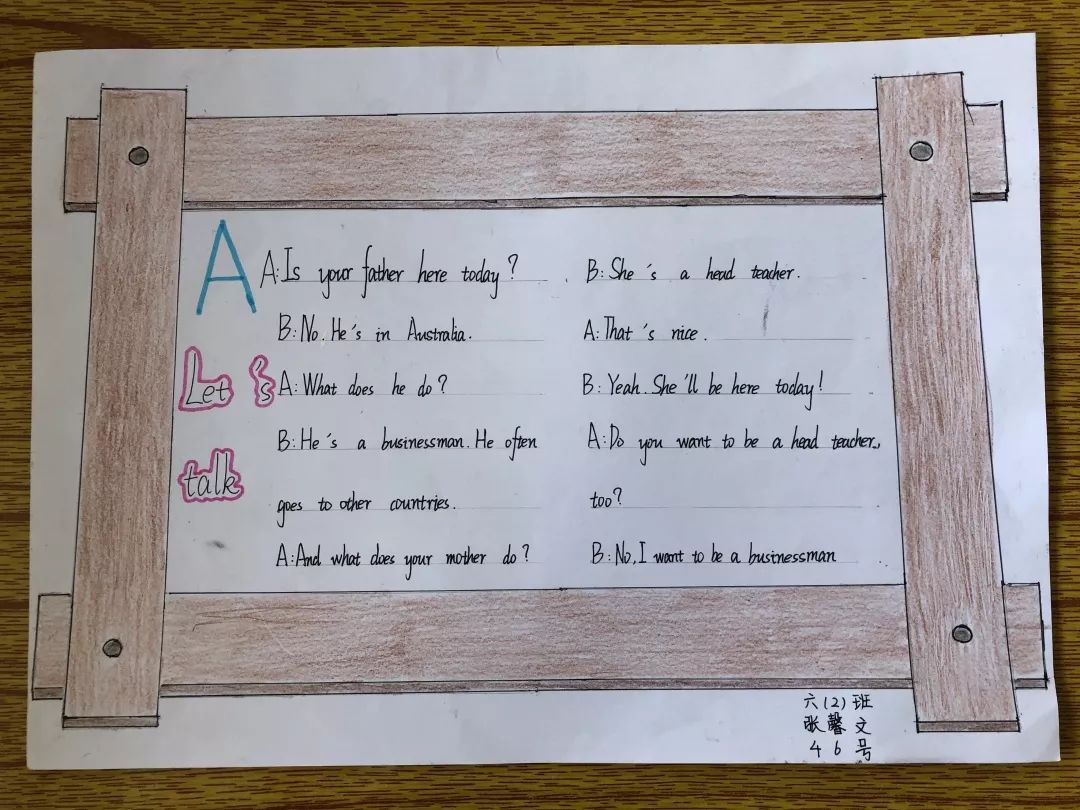 A
Let's
talk
A: Is your father here today?
B: No. He's in Australia.
A: What does he do?
B: He's a businessman. He often
goes to other countries.
A: And what does your mother do?
B: She's a head teacher.
A: That's nice.
B: Yeah. She'll be here today!
A: Do you want to be a head teacher,
too?
B: No, I want to be a businessman
六(2)班
张馨文
46号